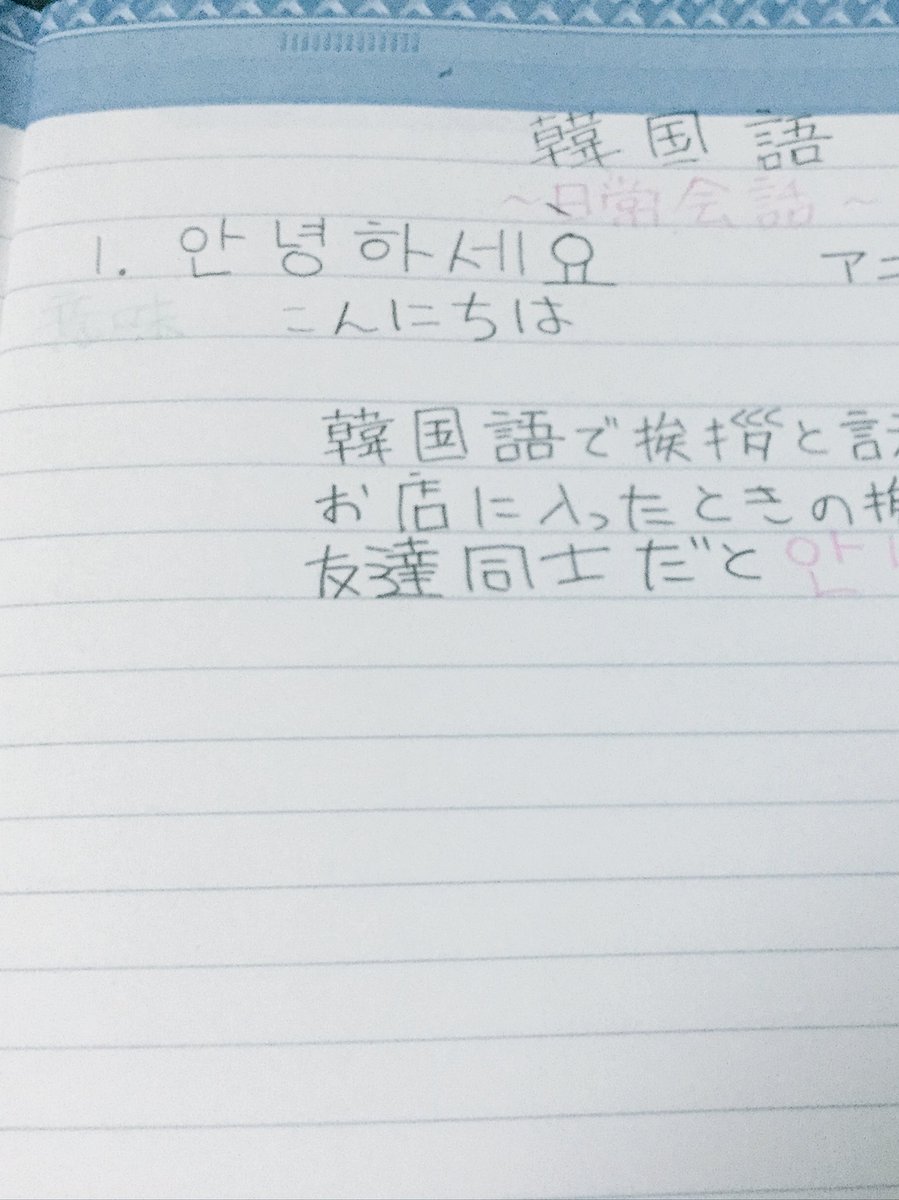 韓国語
~日常会話~
1. 안녕하세요 アニ
意味 こんにちは
韓国語で挨拶と言
お店に入ったときの挨
友達同士だと 안